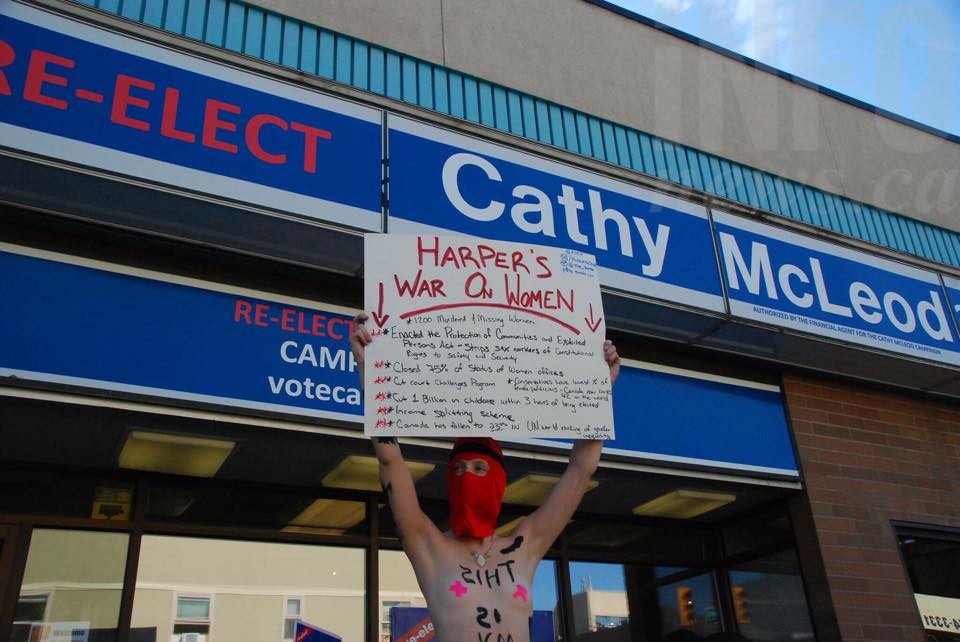 RE-ELECT
Cathy
McLeod
AUTHORIZED BY THE FINANCIAL AGENT FOR THE CATHY MCLEOD CAMPAIGN
RE-ELECT
CAMP
voteca
HARPER'S
WAR ON WOMEN
* 1200 Murdered & Missing Women
* Enacted the Protection of Communities and Exploited
Persons Act - Strips sex workers of Constitutional
Rights to safety and Security
* Closed 75% of Status of Women offices
* Cut court Challenges Program * Conservatives have lowest % of
female politicians - Canada now ranks
42 in the world
* Cut 1 Billion in childcare within 3 hours of being elected
* Income splitting scheme
* Canada has fallen to 23rd IN UN world ranking of gender
inequality
THIS
IS
INFO
news
Welcome
4-3331